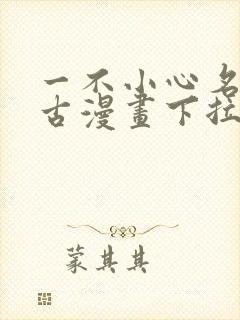 一不小心名
古漫畫下拉
蒙其其